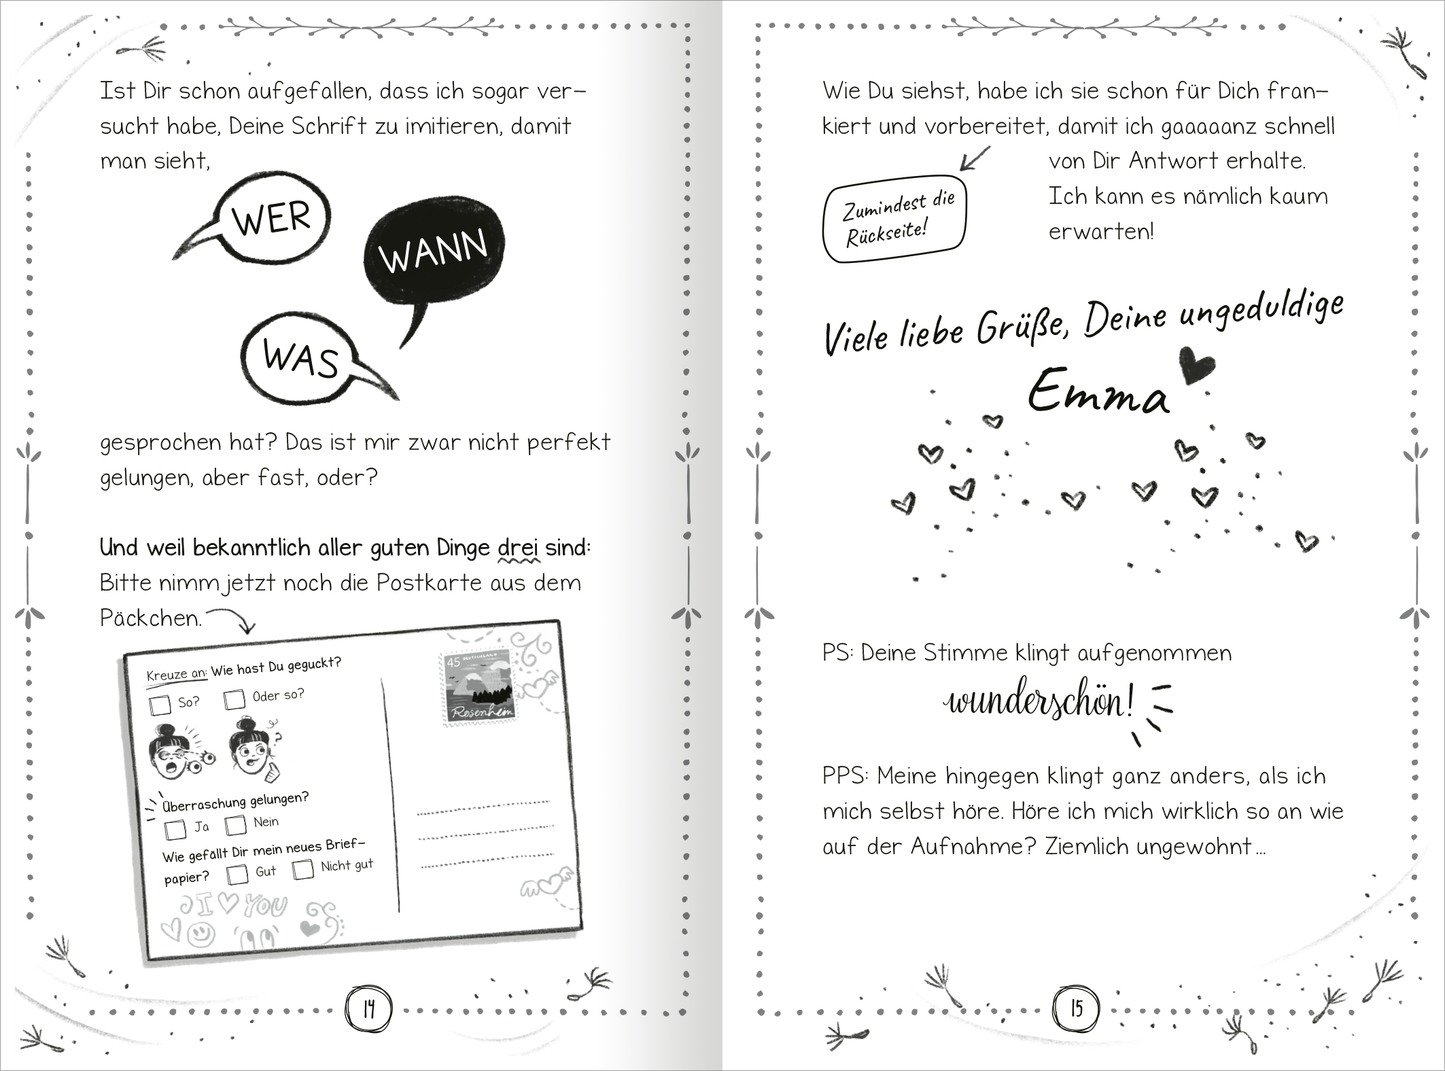 Ist Dir schon aufgefallen, dass ich sogar ver–
sucht habe, Deine Schrift zu imitieren, damit
man sieht,
WER
WANN
WAS
gesprochen hat? Das ist mir zwar nicht perfekt
gelungen, aber fast, oder?
Und weil bekanntlich aller guten Dinge drei sind:
Bitte nimm jetzt noch die Postkarte aus dem
Päckchen.
Kreuze an: Wie hast Du geguckt?
So? Oder so?
Überraschung gelungen?
Ja Nein
Wie gefällt Dir mein neues Brief–
papier? Gut Nicht gut
I YOU
45
Rosenheim
14
Wie Du siehst, habe ich sie schon für Dich fran–
kiert und vorbereitet, damit ich gaaaaanz schnell
von Dir Antwort erhalte.
Ich kann es nämlich kaum
erwarten!
Zumindest die
Rückseite!
Viele liebe Grüße, Deine ungeduldige
Emma
PS: Deine Stimme klingt aufgenommen
wunderschön!
PPS: Meine hingegen klingt ganz anders, als ich
mich selbst höre. Höre ich mich wirklich so an wie
auf der Aufnahme? Ziemlich ungewohnt...
15